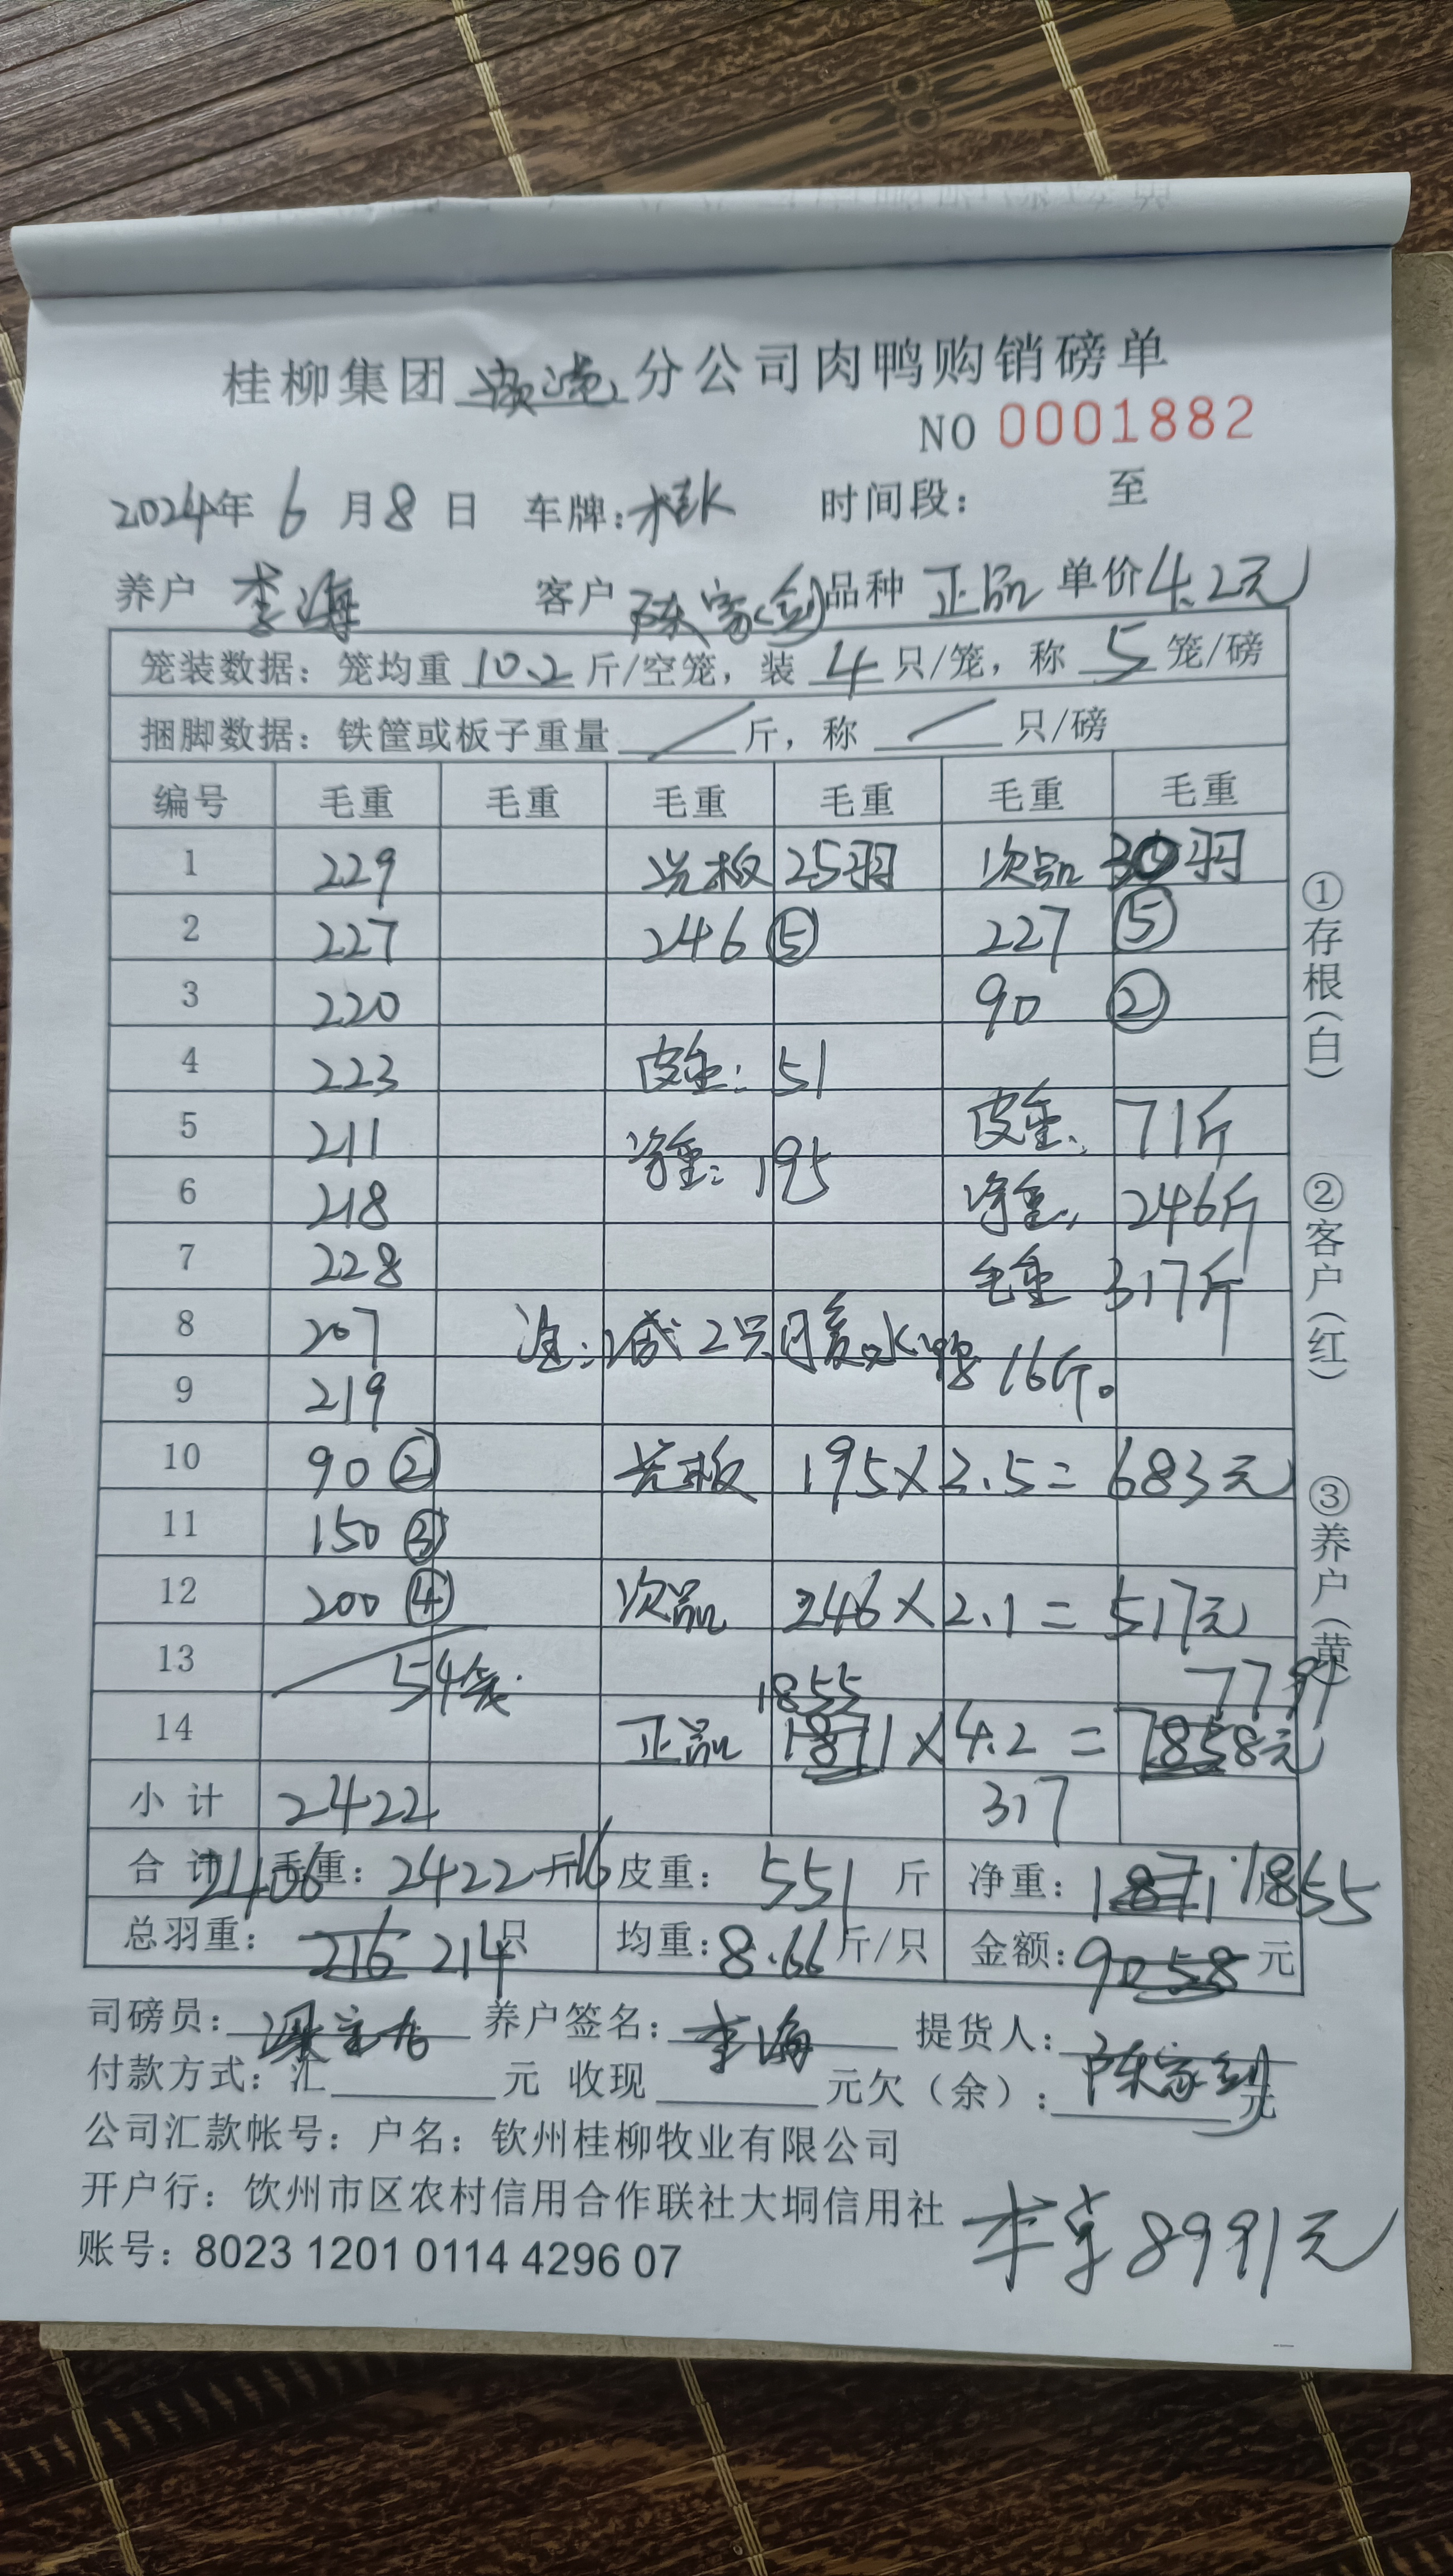 桂柳集团 分公司肉鸭购销磅单
NO 0001882
2024年 6 月 8 日 车牌:桂K 时间段: 至
养户 李海 客户 陈家剑 品种 正品 单价 4.2元
笼装数据: 笼均重 10.2 斤/空笼, 装 4 只/笼, 称 5 笼/磅
捆脚数据: 铁筐或板子重量 / 斤, 称 / 只/磅
编号 毛重 毛重 毛重 毛重 毛重 毛重
1 229 光板 25羽 次品 30羽
2 227 246 ⑤ 227 ⑤
3 220 90 ②
4 223 皮重: 51
5 211 净重: 195 皮重: 71斤
6 218 净重: 246斤
7 228 毛重 317斤
8 207 注:减2只 水鸭 16斤。
9 219
10 90 ② 光板 195×3.5= 683元
11 150 ③
12 200 ④ 次品 246×2.1= 517元
13 54笼 1855 7791
14 正品 1871×4.2= 7858元
小 计 2422 317
合 计 2406 毛重: 2422 斤 16 皮重: 551 斤 净重: 1871 1855
总羽重: 216 214 只 均重: 8.66 斤/只 金额: 9058 元
司磅员: 养户签名: 李海 提货人: 陈家剑
付款方式: 汇 元 收现 元欠(余): 元
公司汇款帐号: 户名: 钦州桂柳牧业有限公司
开户行: 饮州市区农村信用合作联社大垌信用社
账号: 8023 1201 0114 4296 07
本单 8991元
①存根(白)
②客户(红)
③养户(黄)